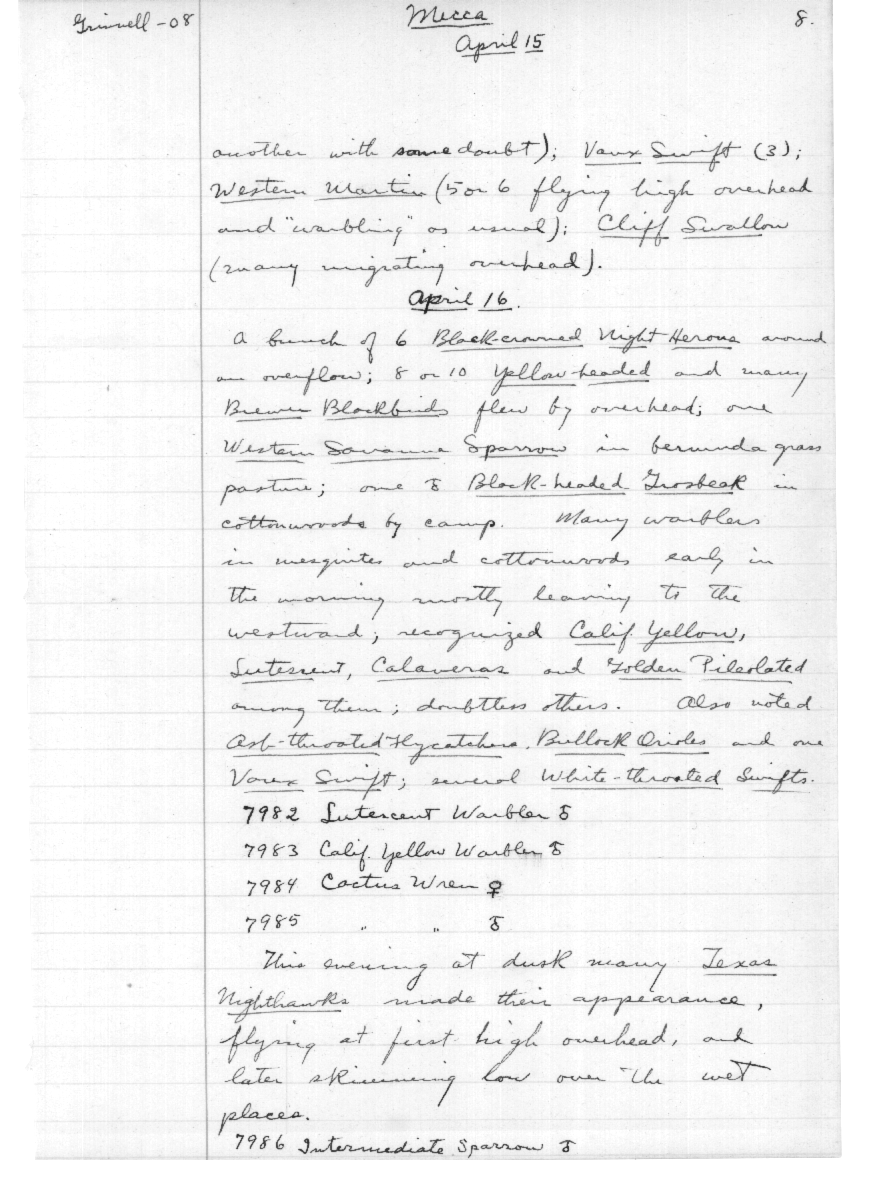 Grinnell - 08
Mecca
8.
April 15
another with some doubt); Vaux Swift (3);
Western Martin (5 or 6 flying high overhead
and "warbling" as usual); Cliff Swallow
(many migrating overhead).
April 16.
A bunch of 6 Black-crowned Night Herons around
an overflow; 8 or 10 Yellow-headed and many
Brewer Blackbirds flew by overhead; one
Western Savanna Sparrow in bermuda grass
pasture; one ♂ Black-headed Grosbeak in
cottonwoods by camp. Many warblers
in mesquites and cottonwoods early in
the morning mostly leaving to the
westward; recognized Calif. Yellow,
Lutescent, Calaveras and Golden Pileolated
among them; doubtless others. Also noted
Ash-throated Flycatchers, Bullock Orioles and one
Vaux Swift; several White-throated Swifts.
7982 Lutescent Warbler ♂
7983 Calif. Yellow Warbler ♂
7984 Cactus Wren ♀
7985 " " ♂
This evening at dusk many Texas
Nighthawks made their appearance,
flying at first high overhead, and
later skimming low over the wet
places.
7986 Intermediate Sparrow ♂